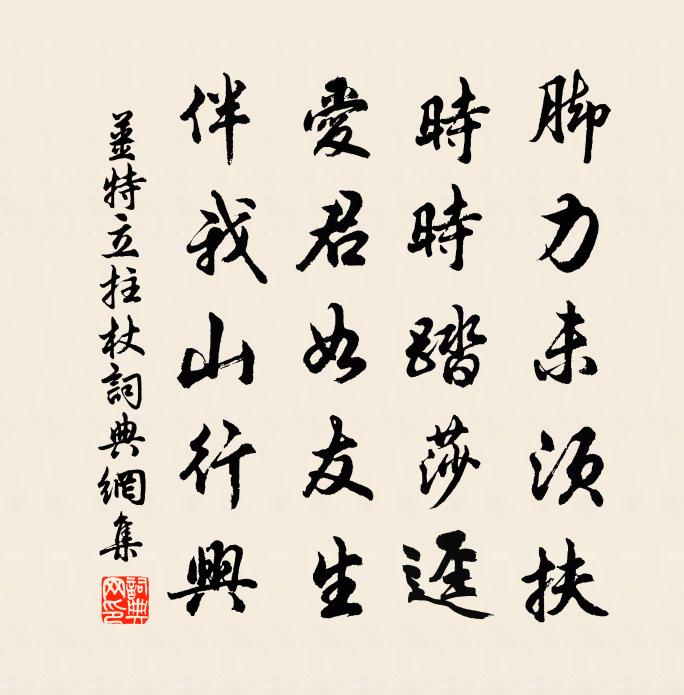 脚力未須扶
時時踏莎逕
愛君如友生
伴我山行興
薑特立拄杖詞典網集
詞典网印